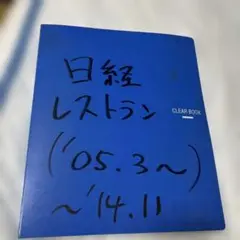 日経
レストラン
CLEAR BOOK
('05.3～)
～'14.11